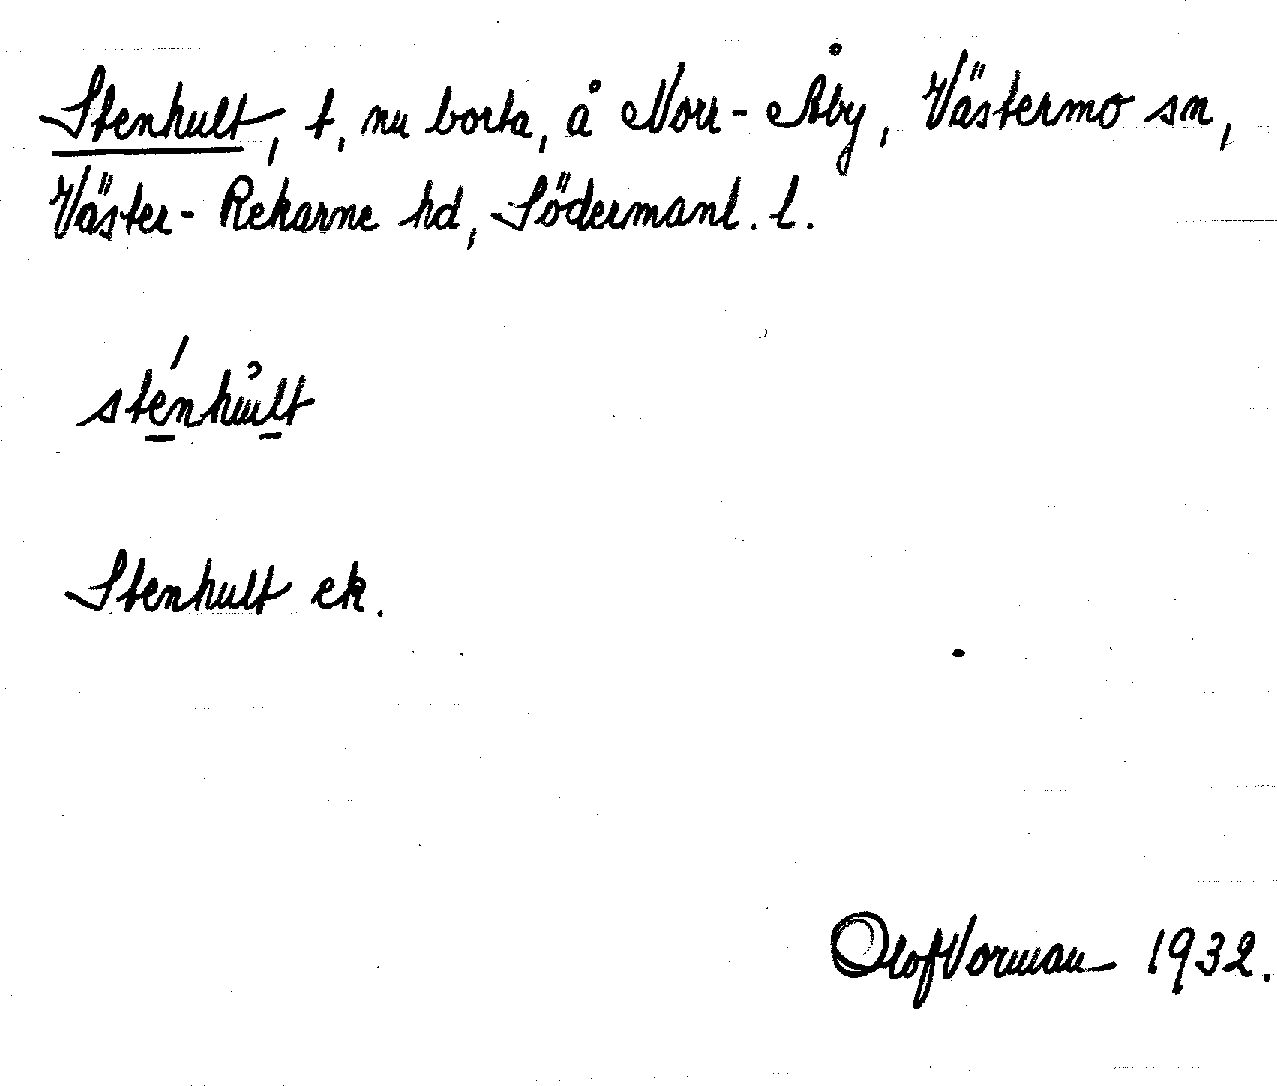 Stenhult, t. nu borta, å Norr-Åby, Västermo sn,
Väster-Rekarne hd, Södermanl. l.
sténhult
Stenhult ek.
Olof Vorman 1932.